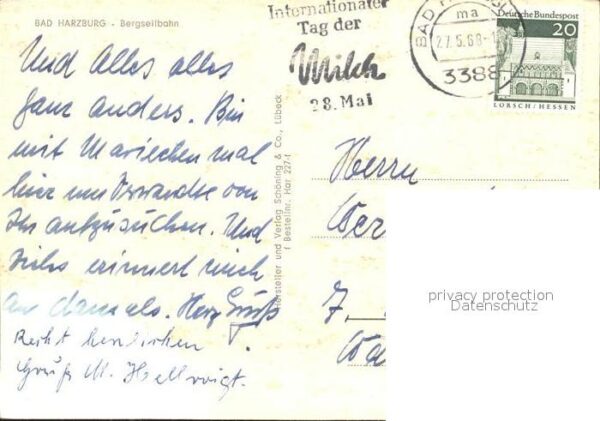 BAD HARZBURG - Bergseilbahn
Und Alles alles
ganz anders. Bin
mit Mariechen mal
hier um Verwandte von
Ihr aufzusuchen. Und
Vieles erinnert mich
an damals. Herz. Gruß
Recht herzlichen
Gruß M. Hellvoigt.
Hersteller und Verlag Schöning & Co., Lübeck
Bestellnr. Har 227
Internationaler
Tag der
Milch
28. Mai
BAD
ma
27.5.68
3388
Deutsche Bundespost
20
LORSCH/HESSEN
Herrn
Wer
7,
privacy protection
Datenschutz